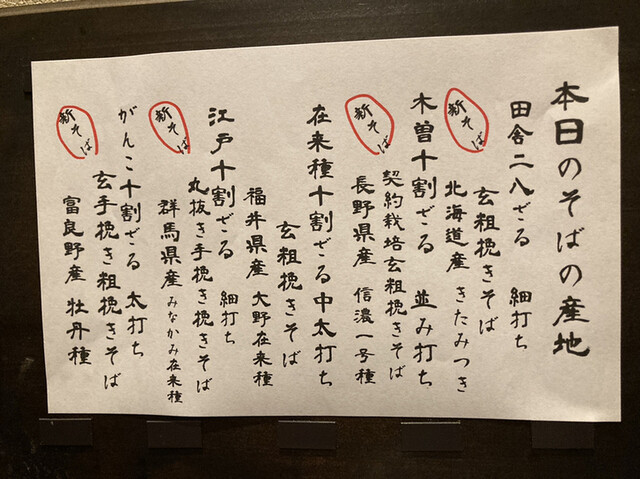 本日のそばの産地
田舎二八ざる　細打ち
玄粗挽きそば
新そば
北海道産　きたみつき
木曽十割ざる　並み打ち
契約栽培玄粗挽きそば
新そば
長野県産　信濃一号種
在来種十割ざる中太打ち
玄粗挽きそば
福井県産　大野在来種
江戸十割ざる　細打ち
丸抜き手挽き挽きそば
新そば
群馬県産みなかみ在来種
がんこ十割ざる　太打ち
玄手挽き粗挽きそば
新そば
富良野産　牡丹種